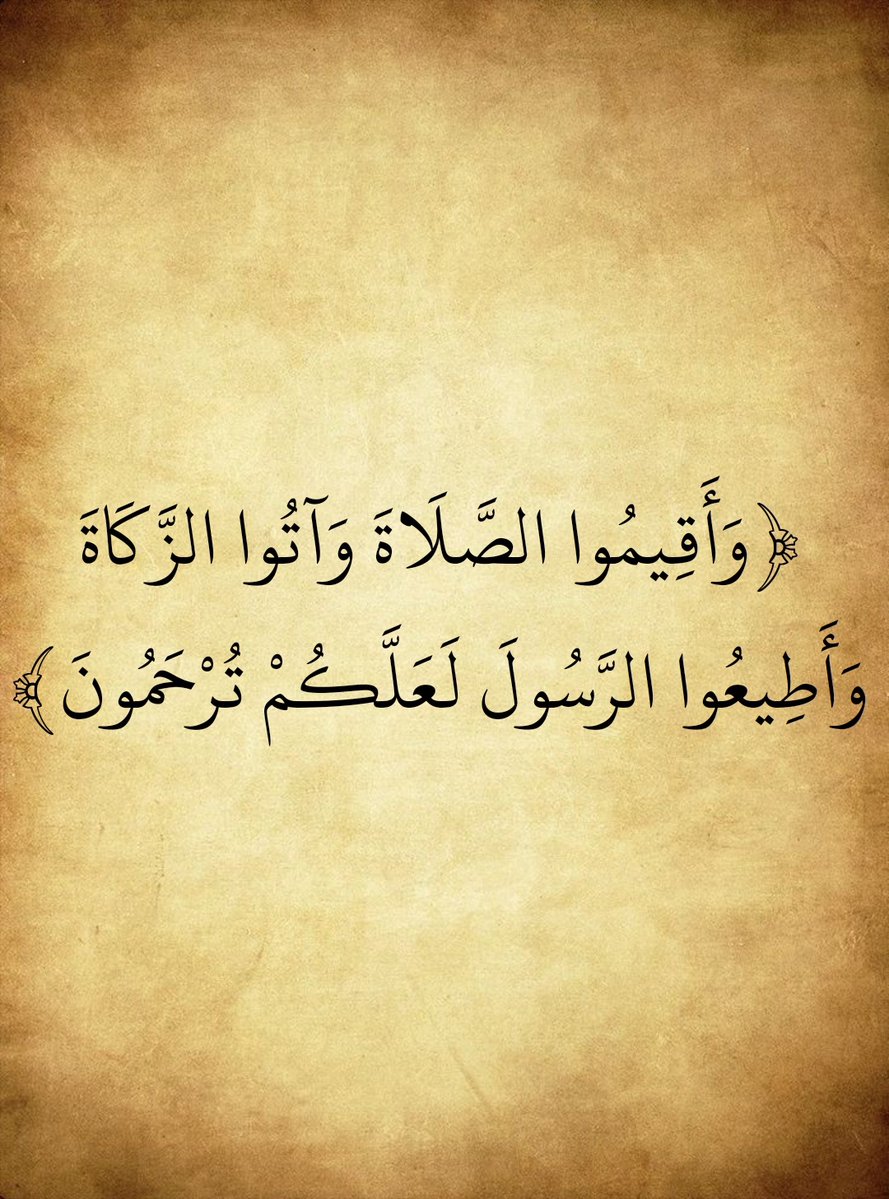 ﴿ وَأَقِيمُوا الصَّلَاةَ وَآتُوا الزَّكَاةَ
وَأَطِيعُوا الرَّسُولَ لَعَلَّكُمْ تُرْحَمُونَ ﴾